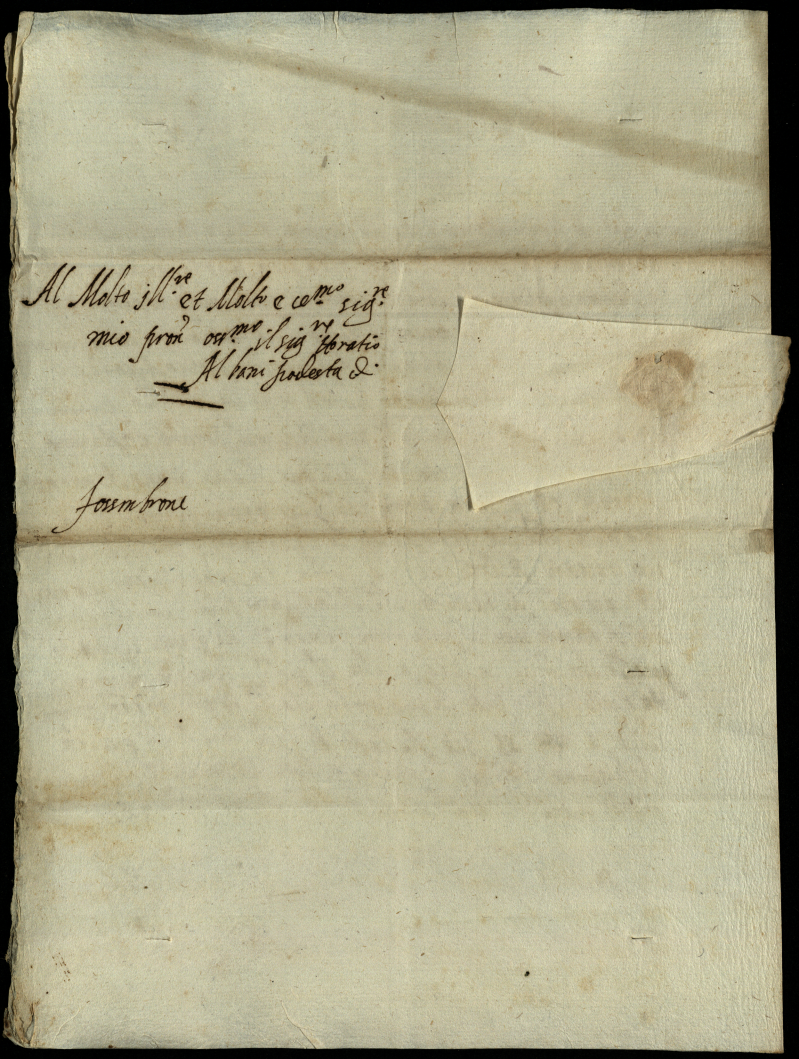 Al Molto jll.re et Molto ecc.mo sig.re
mio pron' oss.mo il sig.re Horatio
Albani podesta di
fossombrone